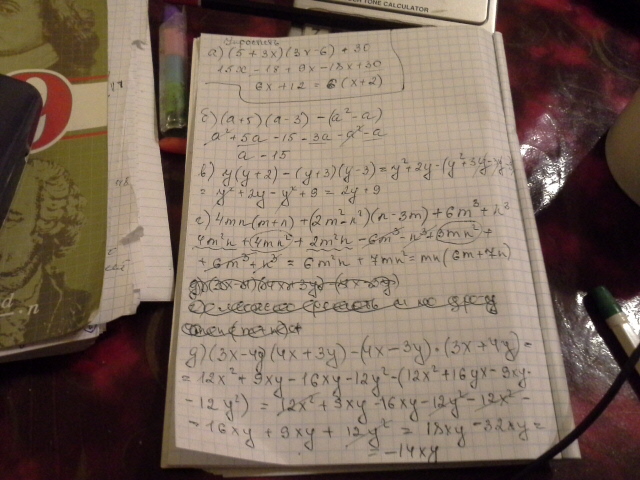 TONE CALCULATOR
Упростить
а) (5+3x)(3x-6)+30
15x-18+9x-18x+30
6x+12=6(x+2)
б) (a+5)(a-3)-(a²-a)
a²+5a-15-3a-a²-a
a-15
в) y(y+2)-(y+3)(y-3)=y²+2y-(y²+3y-
=y²+2y-y²+9=2y+9
г) 4mn(m+n)+(2m²-n²)(n-3m)+6m³+n³
4m²n+4mn²+2m²n-6m³-n³+3mn²+
+6m³+n³=6m²n+7mn²=mn(6m+7n)
д) (3x-4y)(4x+3y)-(4x-3y)·(3x+4y)=
=12x²+9xy-16xy-12y²-(12x²+16yx-9xy-
-12y²)=12x²+9xy-16xy-12y²-12x²-
-16xy+9xy+12y²=18xy-32xy=
=-14xy